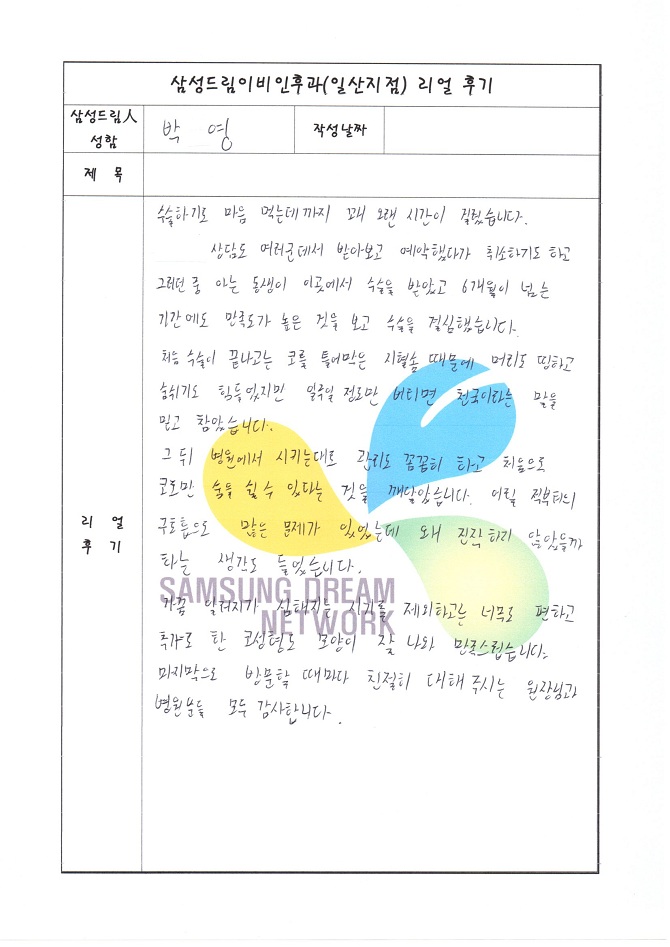 삼성드림이비인후과(일산지점) 리얼 후기
삼성드림人
성함
박 영
작성날짜
제 목
리 얼
후 기
수술하기로 마음 먹는데까지 꽤 오랜 시간이 걸렸습니다.
상담도 여러군데서 받아보고 예약했다가 취소하기도 하고
그러던 중 아는 동생이 이곳에서 수술을 받았고 6개월이 넘는
기간에도 만족도가 높은 것을 보고 수술을 결심했습니다.
처음 수술이 끝나고는 코를 틀어막은 지혈솜 때문에 머리도 띵하고
숨쉬기도 힘들었지만 일주일 정도만 버티면 천국이라는 말을
믿고 참았습니다.
그 뒤 병원에서 시키는대로 관리도 꼼꼼히 하고 처음으로
코로만 숨을 쉴 수 있다는 것을 깨달았습니다. 어릴 적부터의
구호흡으로 많은 문제가 있었는데 왜 진작 하지 않았을까
하는 생각도 들었습니다.
가끔 알러지가 심해지는 시기를 제외하고는 너무도 편하고
추가로 한 코성형도 모양이 잘 나와 만족스럽습니다.
마지막으로 방문할 때마다 친절히 대해 주시는 원장님과
병원분들 모두 감사합니다.
SAMSUNG DREAM
NETWORK